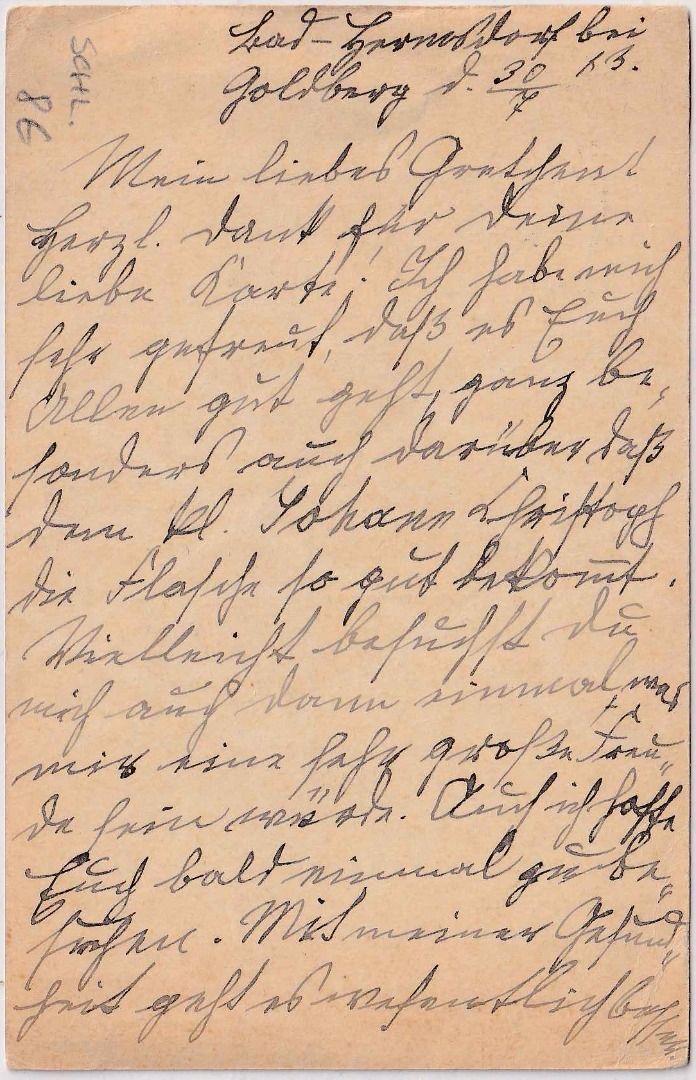 SCHL.
86
Bad-Hermsdorf bei
Goldberg d. 30/7 13.
Mein liebes Gretchen!
Herzl. Dank für Deine
liebe Karte! Ich habe mich
sehr gefreut, daß es Euch
Allen gut geht, ganz be-
sonders auch darüber daß
dem kl. Johann Christoph
die Flasche so gut bekommt.
Vielleicht besuchst Du
mich auch dann einmal, was
mir eine sehr große Freu-
de sein würde. Auch ich hoffe
Euch bald einmal zu be-
suchen. Mit meiner Gesund-
heit geht es wesentlich besser